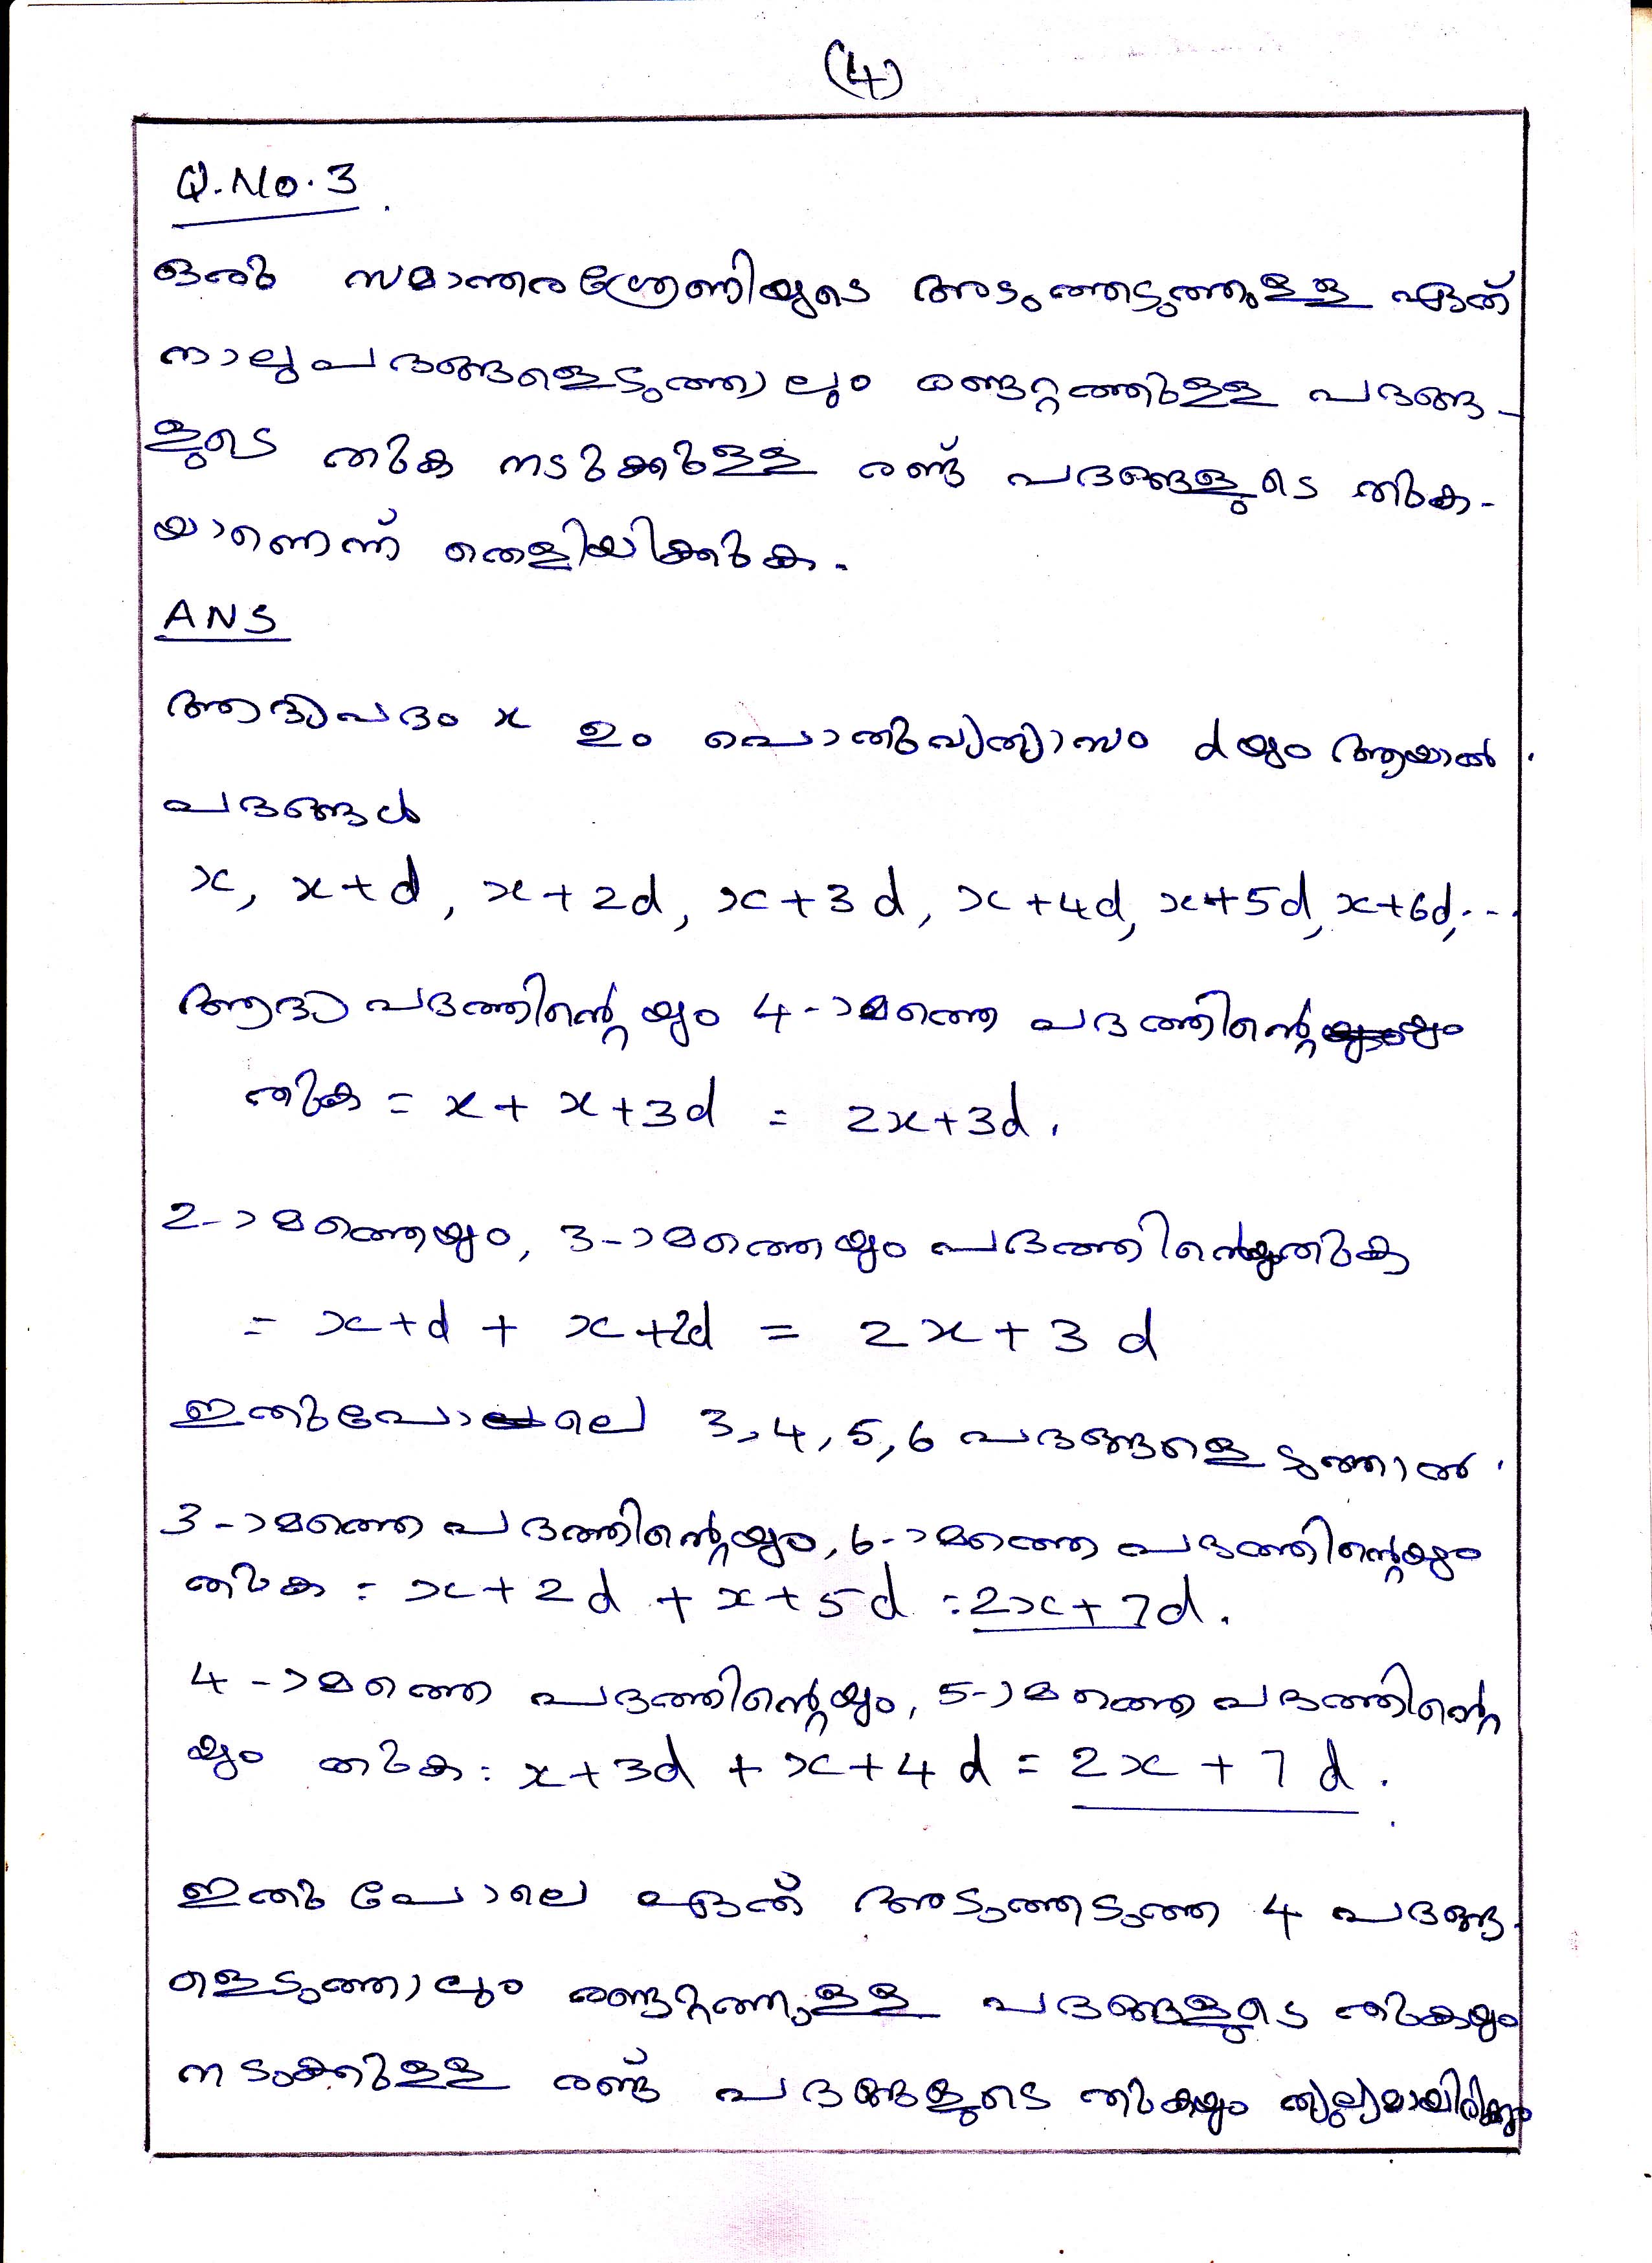 (4)
Q.No.3
ഒരു സമാന്തരശ്രേണിയുടെ അടുത്തടുത്തുള്ള ഏത്
നാലുപദങ്ങളെടുത്താലും രണ്ടറ്റത്തുള്ള പദങ്ങ-
ളുടെ തുക നടുക്കുള്ള രണ്ട് പദങ്ങളുടെ തുക-
യാണെന്ന് തെളിയിക്കുക.
ANS
ആദ്യപദം x ഉം പൊതുവ്യത്യാസം d യും ആയാൽ
പദങ്ങൾ
x, x+d, x+2d, x+3d, x+4d, x+5d, x+6d,...
ആദ്യ പദത്തിന്റെയും 4-ാമത്തെ പദത്തിന്റെയും
തുക = x + x+3d = 2x+3d.
2-ാമത്തെയും, 3-ാമത്തെയും പദത്തിന്റെയും തുക
= x+d + x+2d = 2x+3d
ഇതുപോലെ 3,4,5,6 പദങ്ങളെടുത്താൽ
3-ാമത്തെ പദത്തിന്റെയും, 6-ാമത്തെ പദത്തിന്റെയും
തുക = x+2d + x+5d = 2x+7d.
4-ാമത്തെ പദത്തിന്റെയും, 5-ാമത്തെ പദത്തിന്റെ
യും തുക = x+3d + x+4d = 2x+7d.
ഇതു പോലെ ഏത് അടുത്തടുത്ത 4 പദങ്ങ-
ളെടുത്താലും രണ്ടറ്റത്തുള്ള പദങ്ങളുടെ തുകയും
നടുക്കുള്ള രണ്ട് പദങ്ങളുടെ തുകയും തുല്യമായിരിക്കും